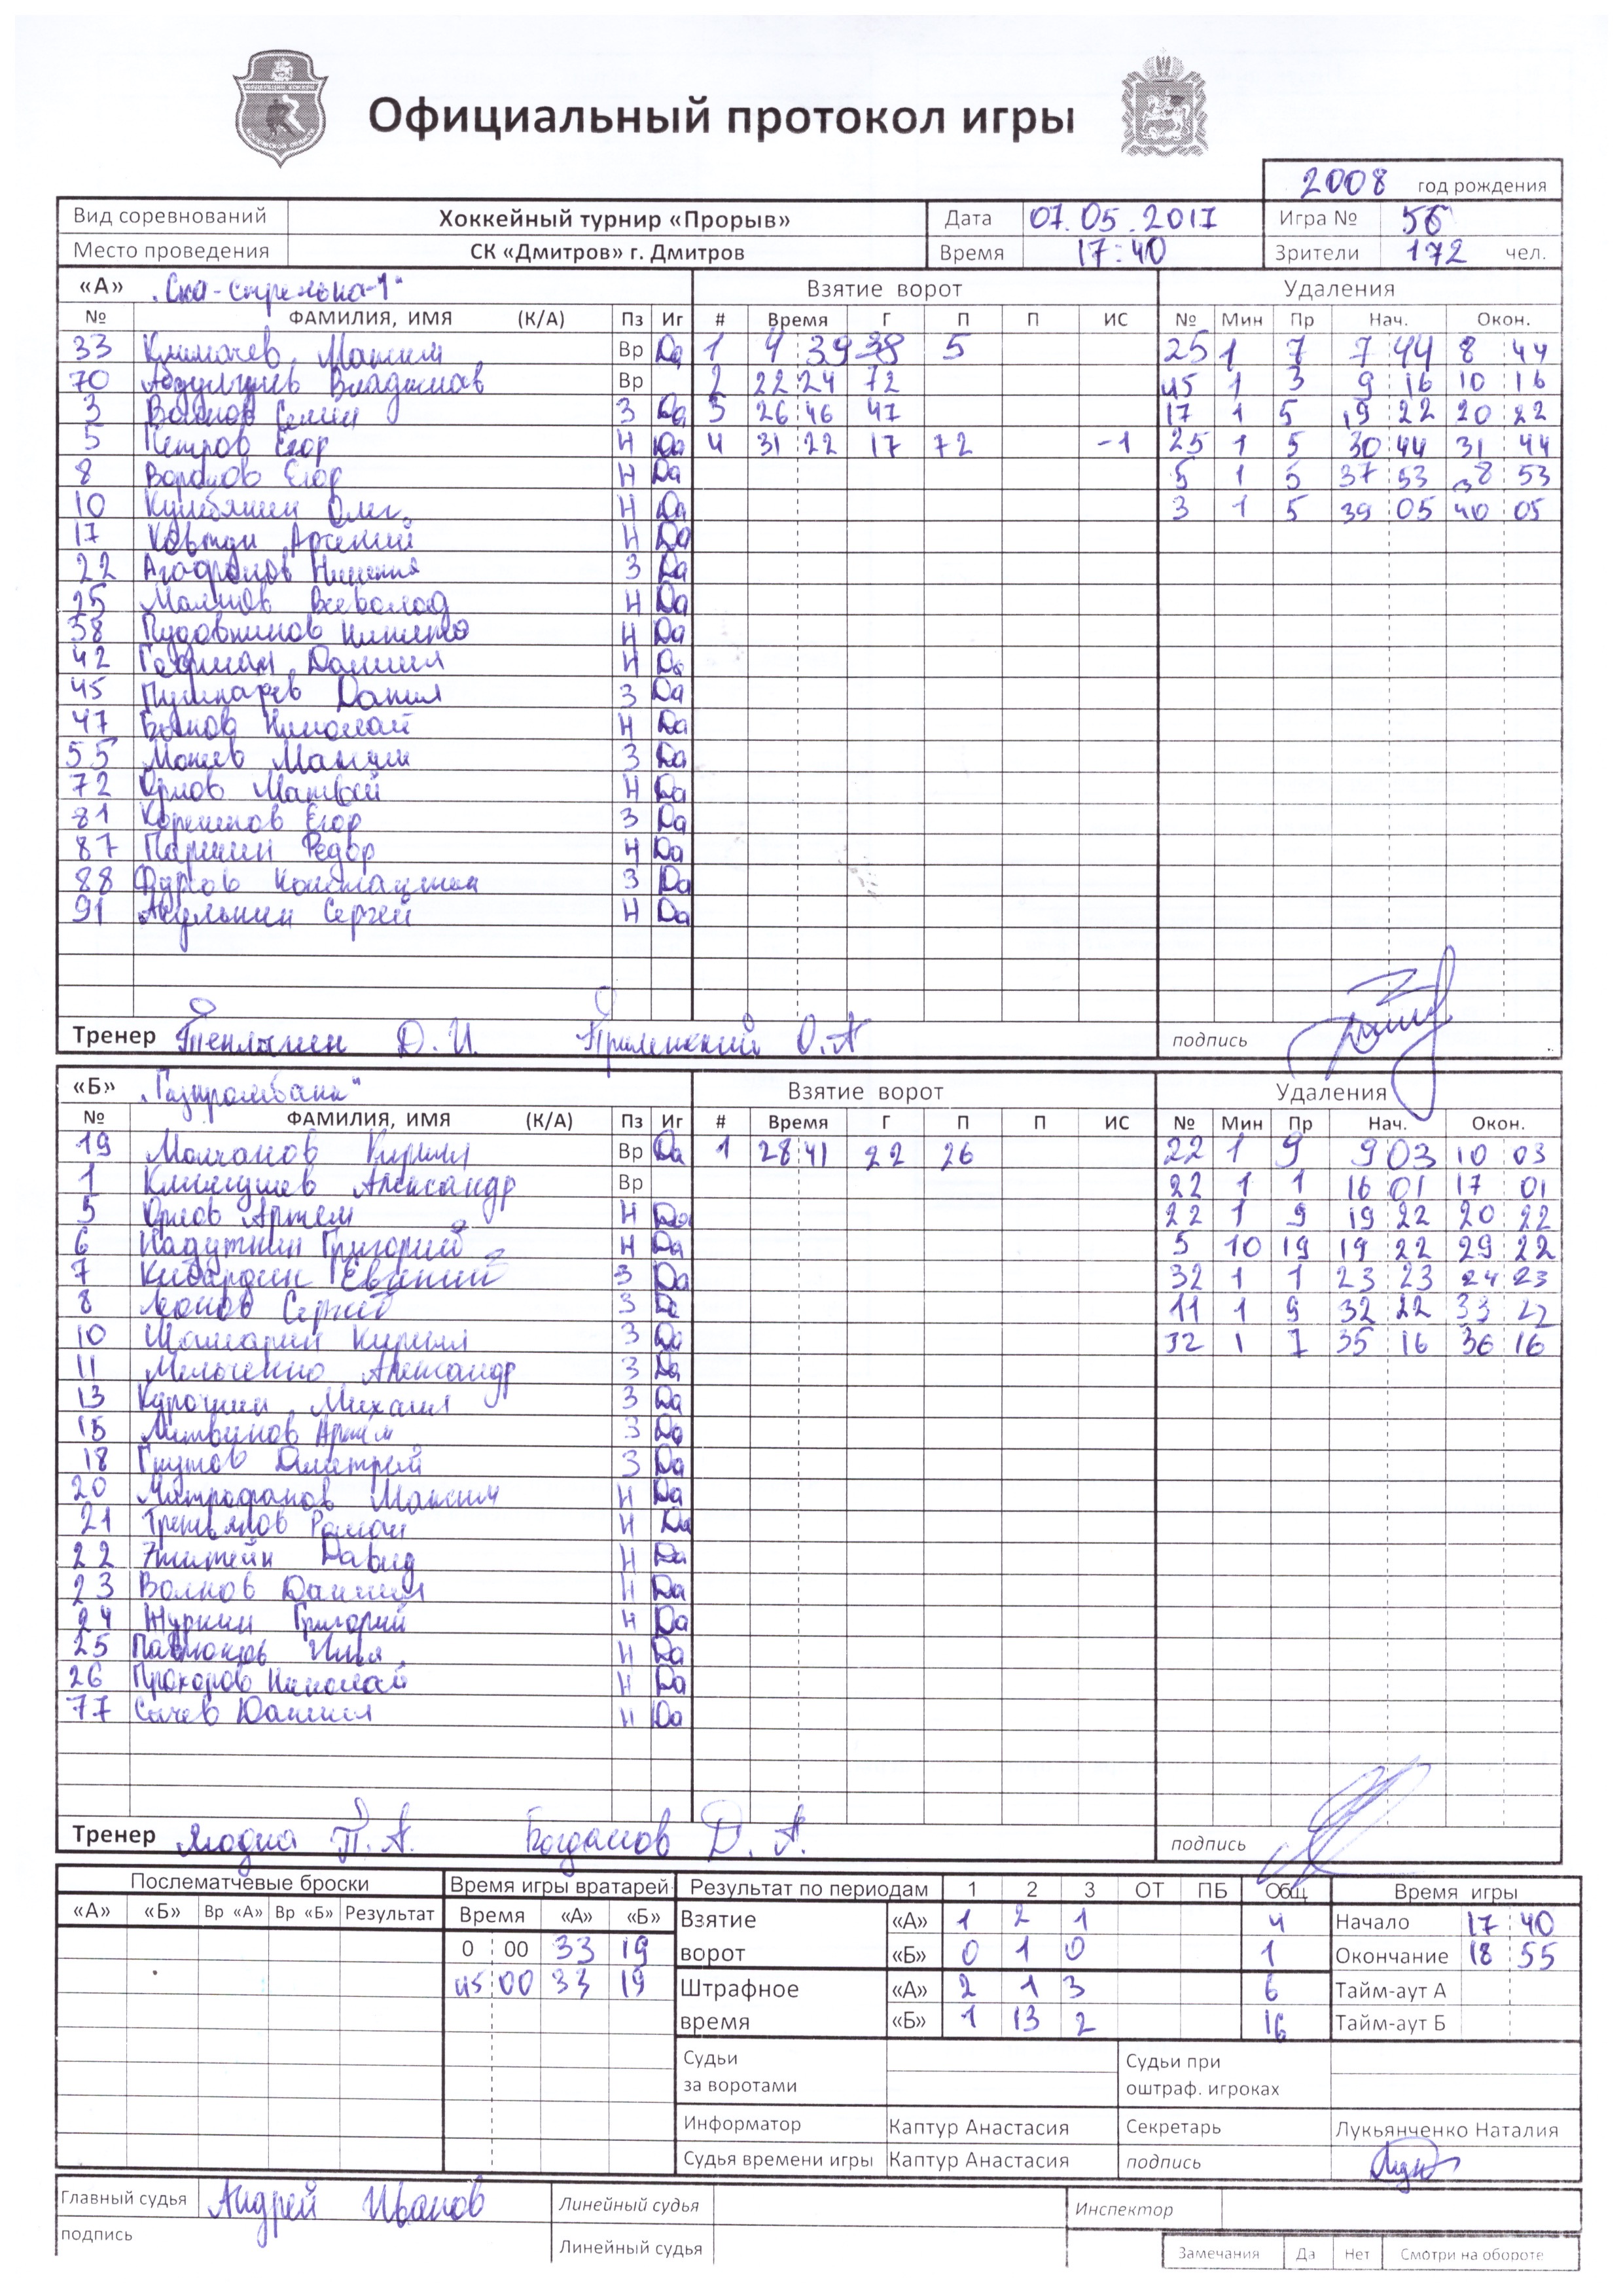 Официальный протокол игры
2008 год рождения
Вид соревнований Хоккейный турнир «Прорыв» Дата 07.05.2017 Игра № 56
Место проведения СК «Дмитров» г. Дмитров Время 17:40 Зрители 172 чел.
«А» "Ска-стрельна-1" Взятие ворот Удаления
№ ФАМИЛИЯ, ИМЯ (К/А) Пз Иг # Время Г П П ИС № Мин Пр Нач. Окон.
33 Максим Вр Да 1 4 39 38 5 25 1 7 7 44 8 44
70 Владислав Вр 2 22 24 72 45 1 3 9 16 10 16
3 Семен З Да 3 26 46 47 17 1 5 19 22 20 22
5 Петров Егор Н Да 4 31 22 17 72 -1 25 1 5 30 44 31 44
8 Воронов Егор Н Да 5 1 5 37 53 38 53
10 Кулебякин Олег Н Да 3 1 5 39 05 40 05
17 Ковтун Арсений Н Да
22 Агафонов Никита З Да
25 Маликов Всеволод Н Да
38 Пудовкинов Никита Н Да
42 Гофман Даниил Н Да
45 Пушкарев Данил З Да
47 Николай Н Да
55 Максим З Да
72 Орлов Матвей Н Да
81 Корешков Егор З Да
87 Паршин Федор Н Да
88 Фурсов Константин З Да
91 Акулинин Сергей Н Да
Тренер Д.И. О.А
подпись
«Б» "Газпромбанк" Взятие ворот Удаления
№ ФАМИЛИЯ, ИМЯ (К/А) Пз Иг # Время Г П П ИС № Мин Пр Нач. Окон.
19 Молчанов Кирилл Вр Да 1 28 41 22 26 22 1 9 9 03 10 03
1 Александр Вр 22 1 1 16 01 17 01
5 Орлов Артем Н Да 22 1 9 19 22 20 22
6 Надуткин Григорий Н Да 5 10 19 19 22 29 22
7 Кибардин Евгений З Да 32 1 1 23 23 24 23
8 Леонов Сергей З Да 11 1 9 32 22 33 22
10 Кирилл З Да 32 1 7 35 16 36 16
11 Мельченко Александр З Да
13 Курочкин Михаил З Да
15 Литвинов Артем З Да
18 Глухов Дмитрий З Да
20 Митрофанов Максим Н Да
21 Третьяков Роман Н Да
22 Эпштейн Давид Н Да
23 Волков Даниил Н Да
24 Журкин Григорий Н Да
25 Павлюков Илья Н Да
26 Прохоров Николай Н Да
77 Сычев Даниил Н Да
Тренер П.А. Богданов Д.А.
подпись
Послематчевые броски Время игры вратарей Результат по периодам 1 2 3 ОТ ПБ Общ Время игры
«А» «Б» Вр «А» Вр «Б» Результат Время «А» «Б» Взятие «А» 1 2 1 4 Начало 17 40
0 00 33 19 ворот «Б» 0 1 0 1 Окончание 18 55
45 00 33 19 Штрафное «А» 2 1 3 6 Тайм-аут А
время «Б» 1 13 2 16 Тайм-аут Б
Судьи Судьи при
за воротами оштраф. игроках
Информатор Каптур Анастасия Секретарь Лукьянченко Наталия
Судья времени игры Каптур Анастасия подпись
Главный судья Андрей Иванов Линейный судья Инспектор
подпись Линейный судья Замечания Да Нет Смотри на обороте